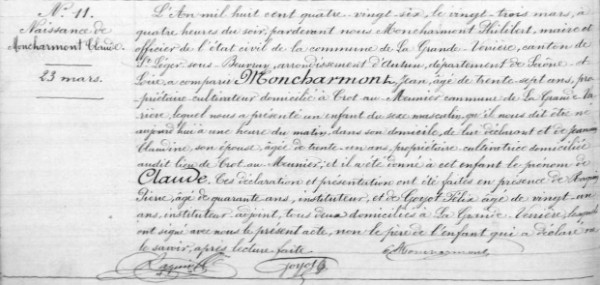 N.° 11.
Naissance de
Moncharmont Claude.
23 mars.
L'An mil huit cent quatre-vingt-six, le vingt-trois mars, à
quatre heures du soir, pardevant nous Moncharmont Philibert, maire et
officier de l'état civil de la commune de La Grande-Verrière, canton de
St Léger-sous-Beuvray, arrondissement d'Autun, département de Saône-et-
Loire, a comparu Moncharmont Jean, âgé de trente-sept ans, pro-
priétaire cultivateur domicilié à Crot-au-Meunier commune de La Grande-Ver-
rière, lequel nous a présenté un enfant du sexe masculin, qu'il nous dit être né
aujourd'hui à une heure du matin, dans son domicile, de lui déclarant et de
Claudine, son épouse, âgée de trente-un ans, propriétaire cultivatrice domiciliée
audit lieu de Crot-au-Meunier, et il a été donné à cet enfant le prénom de
Claude. Ces déclaration et présentation ont été faites en présence de
Pierre, âgé de quarante ans, instituteur, et de Goyot Félix âgé de vingt-un
ans, instituteur adjoint, tous deux domiciliés à La Grande-Verrière, lesquels
ont signé avec nous le présent acte, non le père de l'enfant qui a déclaré ne
le savoir, après lecture faite.
Moncharmont
Goyot f